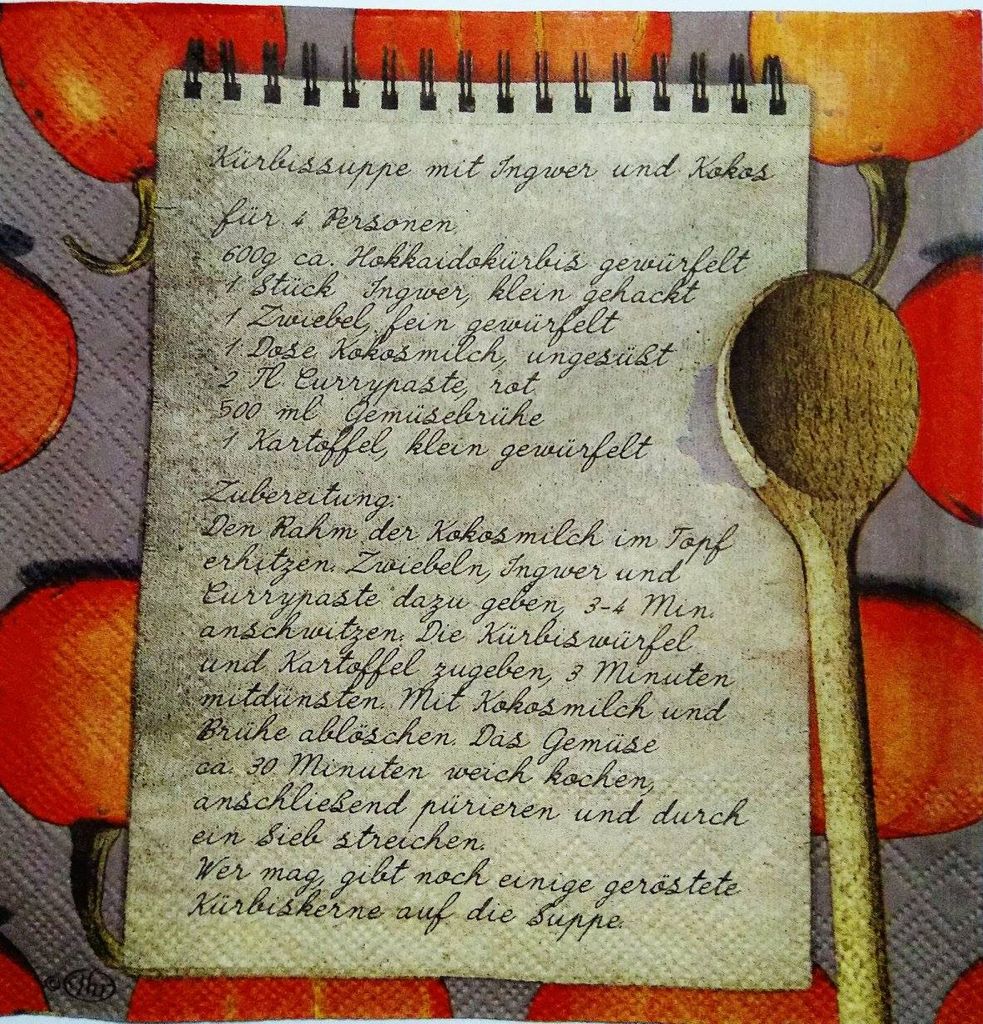 Kürbissuppe mit Ingwer und Kokos
für 4 Personen
600g ca. Hokkaidokürbis gewürfelt
1 Stück Ingwer, klein gehackt
1 Zwiebel, fein gewürfelt
1 Dose Kokosmilch, ungesüßt
2 Tl Currypaste, rot
500 ml Gemüsebrühe
1 Kartoffel, klein gewürfelt
Zubereitung:
Den Rahm der Kokosmilch im Topf
erhitzen. Zwiebeln, Ingwer und
Currypaste dazu geben, 3-4 Min.
anschwitzen. Die Kürbiswürfel
und Kartoffel zugeben, 3 Minuten
mitdünsten. Mit Kokosmilch und
Brühe ablöschen. Das Gemüse
ca. 30 Minuten weich kochen,
anschließend pürieren und durch
ein Sieb streichen.
Wer mag, gibt noch einige geröstete
Kürbiskerne auf die Suppe.
© Ihr